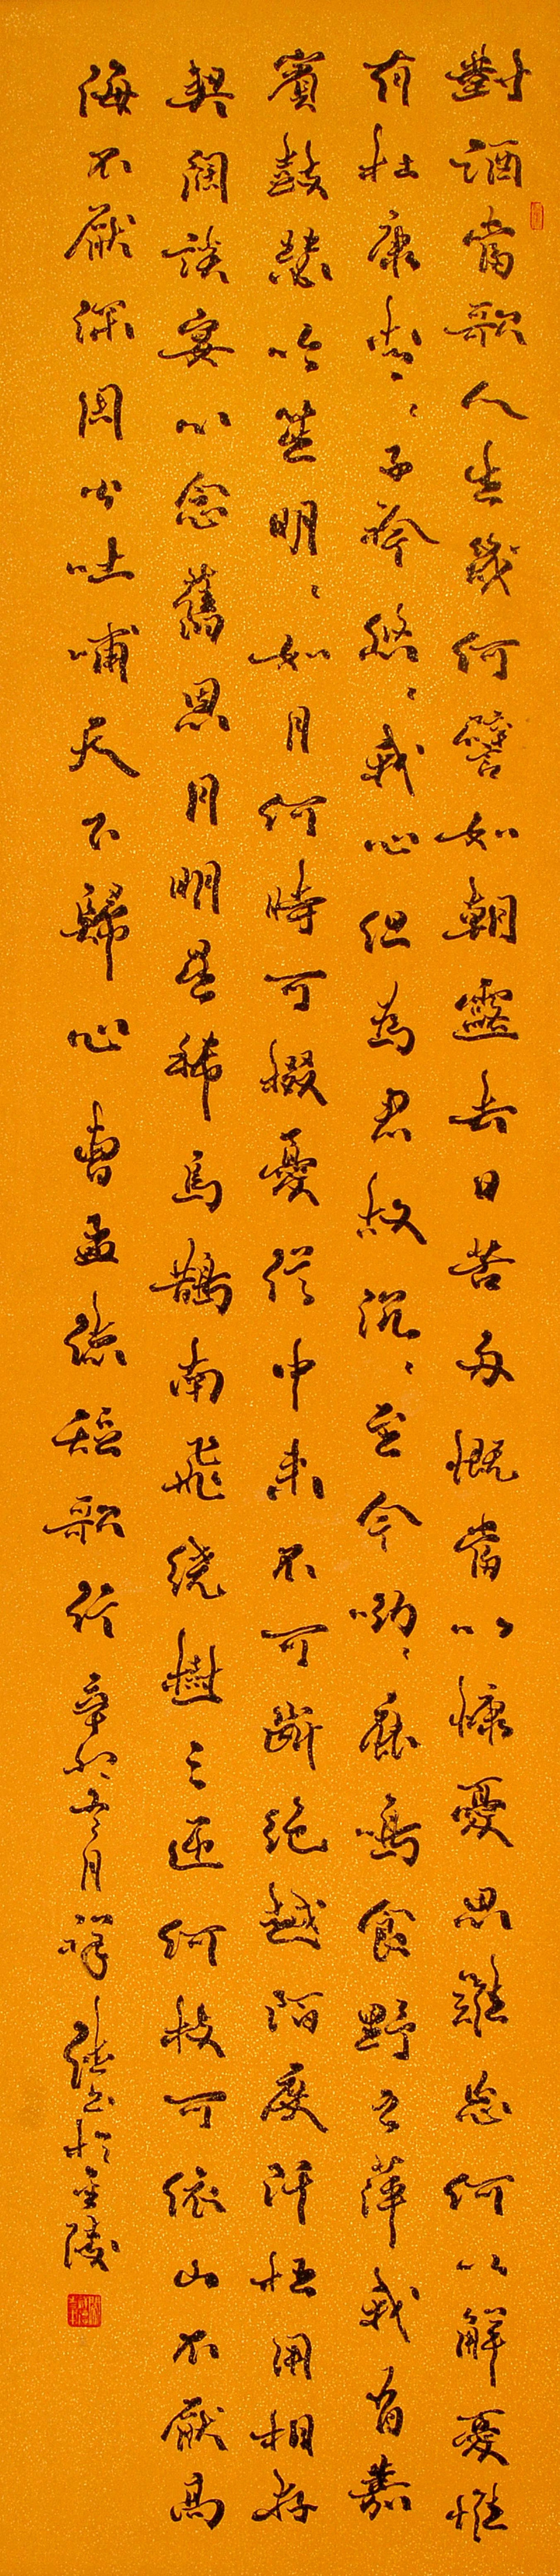 對酒當歌人生幾何譬如朝露去日苦多慨當以慷憂思難忘何以解憂惟
有杜康青、子衿悠、我心但為君故沉、至今呦、鹿鳴食野之萍我有嘉
賓鼓瑟吹笙明、如月何時可掇憂從中來不可斷絕越陌度阡枉用相存
契闊談宴心念舊恩月明星稀烏鵲南飛繞樹三匝何枝可依山不厭高
海不厭深周公吐哺天下歸心曹孟德短歌行辛卯冬月祥書於金陵